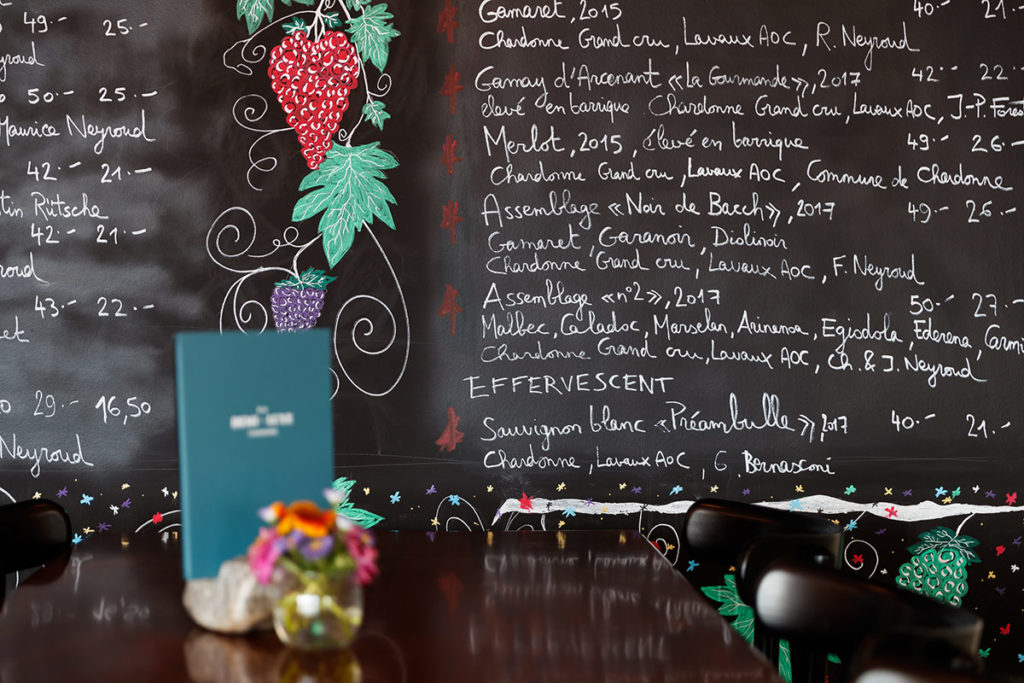 49.- 25.-
yroud
50.- 25.-
Maurice Neyroud
42.- 21.-
tin Rütsche
42.- 21.-
roud
43.- 22.-
et
29.- 16,50
Neyroud
Gamaret, 2015 40.- 21.-
Chardonne Grand cru, Lavaux AOC, R. Neyroud
Gamay d'Arcenant «La Gourmande», 2017 42.- 22.-
élevé en barrique Chardonne Grand cru, Lavaux AOC, J.-P. Fores
Merlot, 2015, élevé en barrique 49.- 26.-
Chardonne Grand cru, Lavaux AOC, Commune de Chardonne
Assemblage «Noir de Bacch», 2017 49.- 26.-
Gamaret, Garanoir, Diolinoir
Chardonne Grand cru, Lavaux AOC, F. Neyroud
Assemblage «n°2», 2017 50.- 27.-
Malbec, Caladoc, Marselan, Arinenoa, Egiodola, Ederena, Carmi
Chardonne Grand cru, Lavaux AOC, Ch. & J. Neyroud
EFFERVESCENT
Sauvignon blanc «Préambulle», 2017 40.- 21.-
Chardonne, Lavaux AOC, G Bernasconi